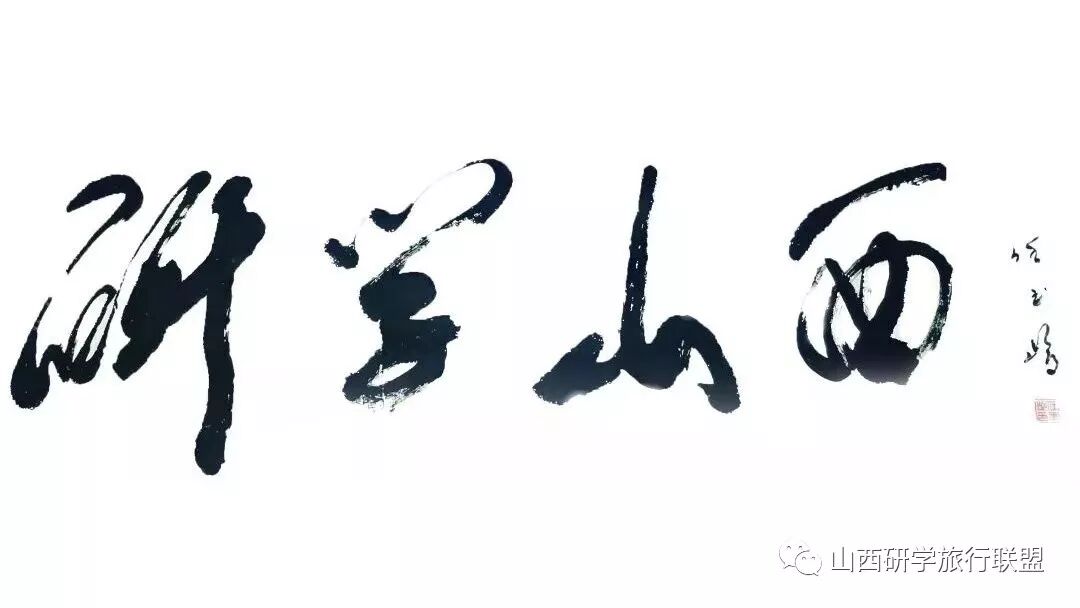 研学山西
山西研学旅行联盟